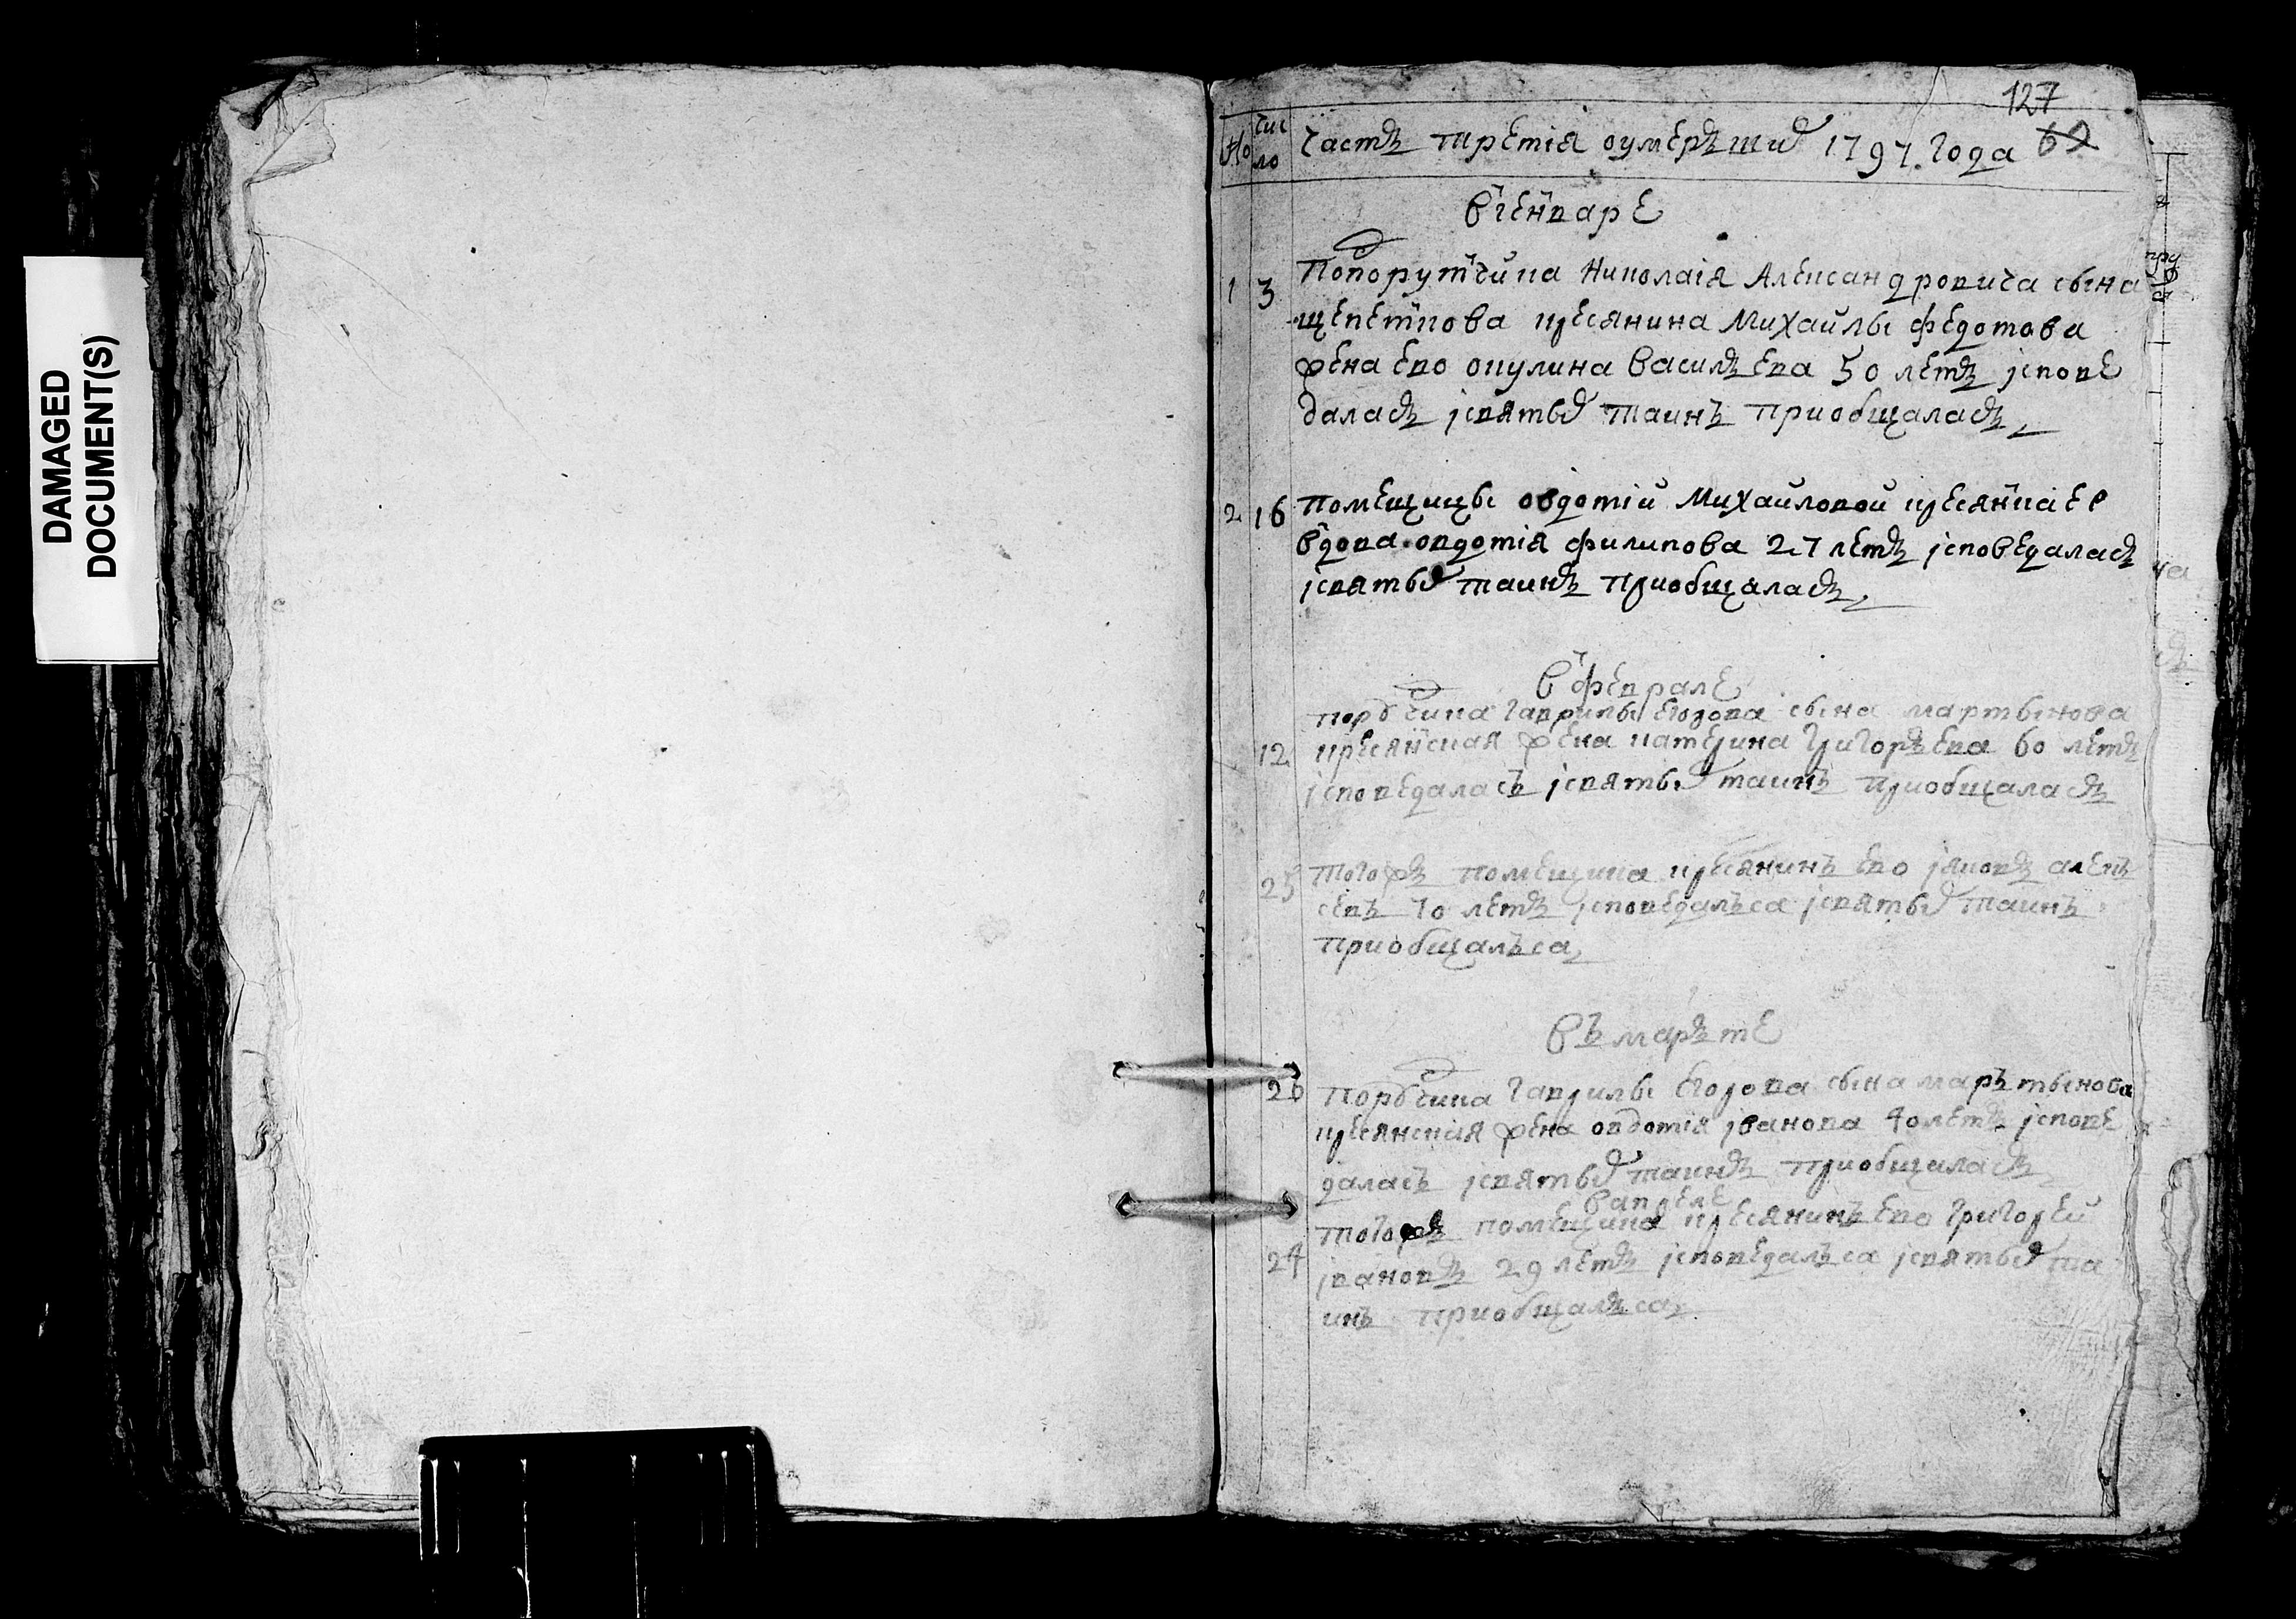 DAMAGED
DOCUMENT(S)
127
69
Но
чис
ло
Частъ третія оумеръших 1797. года
В генваре
1 3 Подпорутчика Николаія Александровича сына
щепеткова кресянина Михайлы Федотова
жена ево окулина Василъева 50 летъ јспове
даласъ јсвятых таинъ приобщаласъ
2 16 помещицы овдотіи Михайловой кресянка ее
вдова овдотія филипова 27 летъ јсповедаласъ
јсвятых таинъ приобщаласъ
В феврале
порудчика гаврилы егорова сына мартынова
12 кресянская жена катерина григоръева 60 летъ
јсповедаласъ јсвятых таинъ приобщаласъ
25 тогожъ помещика кресянинъ ево јяковъ алекъ
сеевъ 70 летъ јсповедалъса јсвятых таинъ
приобщалъса
Въ маръте
20 порудчика гаврилы егорова сына маръ тынова
кресянская жена овдотія јванова 40 летъ јспове
даласъ јсвятых таинъ приобщаласъ
В апреле
тогожъ помещика кресянинъ ево григорей
24 јвановъ 29 летъ јсповедалъса јсвятых та
инъ приобщалъса